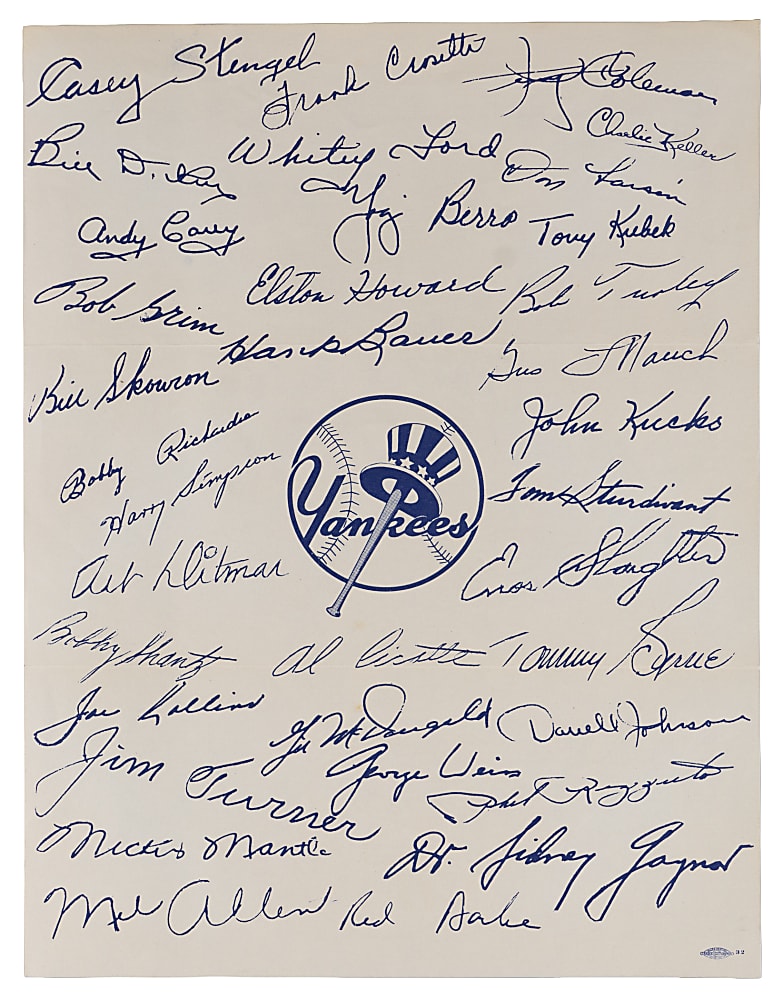 Casey Stengel
Frank Crosetti
Jerry Coleman
Charlie Keller
Bill Dickey
Whitey Ford
Don Larsen
Andy Carey
Yogi Berra
Tony Kubek
Bob Grim
Elston Howard
Bob Turley
Hank Bauer
Gus Mauch
Bill Skowron
John Kucks
Bobby Richardson
Harry Simpson
Yankees
Tom Sturdivant
Art Ditmar
Enos Slaughter
Bobby Shantz
Al Cicotte
Tommy Byrne
Joe Collins
Gil McDougald
Darrell Johnson
Jim Turner
George Weiss
Phil Rizzuto
Mickey Mantle
Dr. Sidney Gaynor
Mel Allen
Red Barber
32